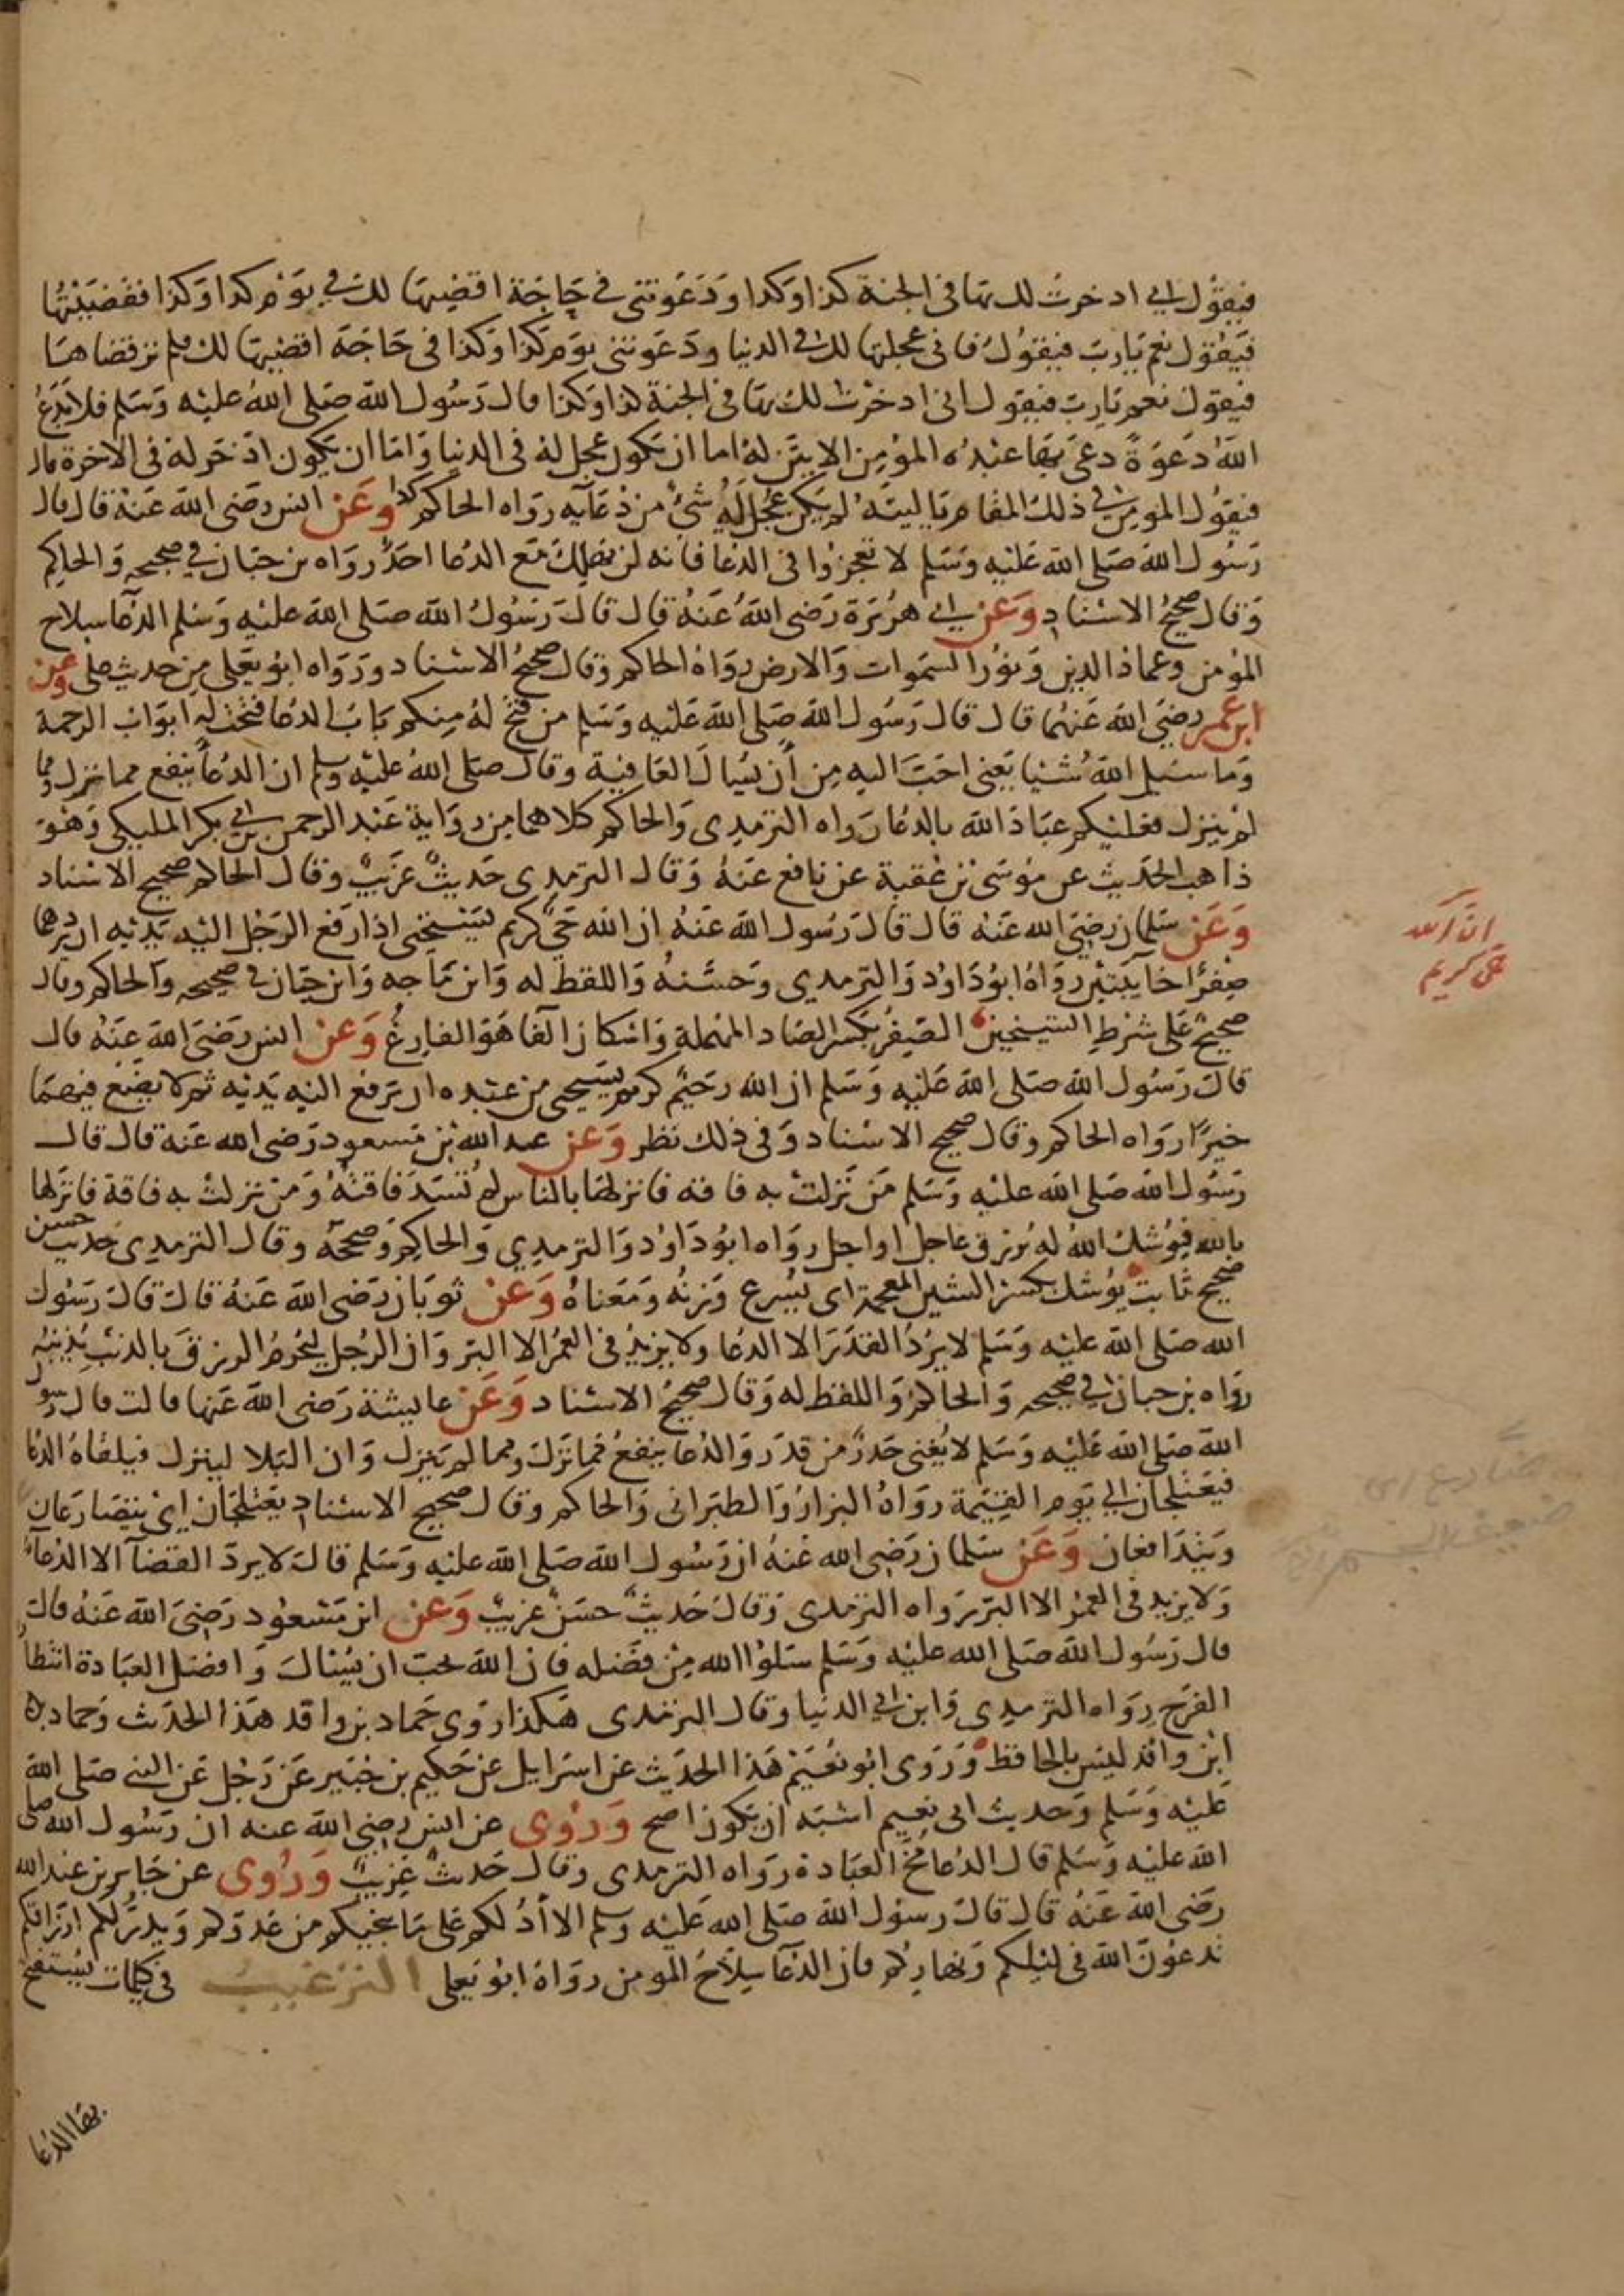 فيقول اني ادخرت لك بها في الجنة كذا وكذا ودعوتني في حاجة اقضيها لك في يوم كذا وكذا فقضيتها
فيقول نعم يارب فيقول فاني عجلتها لك في الدنيا ودعوتني يوم كذا وكذا في حاجة اقضيها لك فلم تر قضاها
فيقول نعم يارب فيقول اني ادخرت لك بها في الجنة كذا وكذا قال رسول الله صلى الله عليه وسلم فلا يدع
الله دعوة دعى بها عبده المؤمن الا بين له اما ان يكون عجل له في الدنيا واما ان يكون ادخر له في الاخرة قال
فيقول المومن في ذلك المقام يا ليته لم يكن عجل له شئ من دعآيه رواه الحاكم وعن انس رضي الله عنه قال قال
رسول الله صلى الله عليه وسلم لا تعجزوا في الدعا فانه لن يهلك مع الدعا احد رواه بن حبان في صحيحه والحاكم
وقال صحيح الاسناد وعن ابي هريرة رضي الله عنه قال قال رسول الله صلى الله عليه وسلم الدعآ سلاح
المؤمن وعماد الدين ونور السموات والارض رواه الحاكم وقال صحيح الاسناد ورواه ابو يعلى من حديث على وعن
ابن عمر رضي الله عنهما قال قال رسول الله صلى الله عليه وسلم من فتح له منكم باب الدعا فتحت له ابواب الرحمة
وما سيل الله شئيا يعني احب اليه من أن يسال العافية وقال صلى الله عليه وسلم ان الدعآ ينفع مما نزل ومما
لم ينزل فعليكم عباد الله بالدعا رواه الترمدي والحاكم كلاهما من رواية عبد الرحمن بن ابي بكر المليكي وهو
ذاهب الحديث عن موسى بن عقبة عن نافع عنه وقال الترمدي حديث غريب وقال الحاكم صحيح الاسناد
وعن سلمان رضي الله عنه قال قال رسول الله عنه ان الله حي كريم يستحي اذا رفع الرجل اليه يديه ان يردهما
صفرا خآيبتين رواه ابو داود والترمدي وحسنه واللفظ له وابن ماجه وابن حبان في صحيحه والحاكم وقال
صحيح على شرط الشيخين الصفر بكسر الصاد المهملة واسكان الفا هو الفارغ وعن انس رضي الله عنه قال
قال رسول الله صلى الله عليه وسلم ان الله رحيم كريم يستحي من عبده ان يرفع اليه يديه ثم لا يضع فيهما
خيرًا رواه الحاكم وقال صحيح الاسناد وفي ذلك نظر وعن عبد الله بن مسعود رضي الله عنه قال قال
رسول الله صلى الله عليه وسلم من نزلت به فاقه فانزلها بالناس لم تسد فاقته ومن نزلت به فاقة فانزلها
بالله فيوشك الله له برزق عاجل او اجل رواه ابو داود والترمدي والحاكم وصححه وقال الترمدي حديث حسن
صحيح ثابت يوشك بكسر الشين المعجمة اى يسرع وزنه ومعناه وعن ثوبان رضي الله عنه قال قال رسول
الله صلى الله عليه وسلم لا يرد القدر الا الدعا ولا يزيد في العمر الا البر وان الرجل ليحرم الرزق بالذنب يذنبه
رواه بن حبان في صحيحه والحاكم واللفظ له وقال صحيح الاسناد وعن عايشة رضي الله عنها قالت قال رسول
الله صلى الله عليه وسلم لا يغني حذر من قدر والدعا ينفع مما نزل ومما لم ينزل وان البلا لينزل فيلقاه الدعا
فيعتلجان الي يوم القيمة رواه البزار والطبراني والحاكم وقال صحيح الاسناد يعتلجان اي يتصارعان
ويتدافعان وعن سلمان رضي الله عنه ان رسول الله صلى الله عليه وسلم قال لا يرد القضآ الا الدعآ
ولا يزيد في العمر الا البر رواه الترمدي وقال حديث حسن غريب وعن ابن مسعود رضي الله عنه قال
قال رسول الله صلى الله عليه وسلم سلوا الله من فضله فان الله يحب ان يسال وافضل العبادة انتظار
الفرج رواه الترمدي وابن ابي الدنيا وقال الترمدى هكذا روى حماد بن واقد هذا الحدث وحماد بن
ابن واقد ليس بالحافظ وروى ابو نعيم هذا الحديث عن اسرايل عن حكيم بن جبير عن رجل عن النبي صلى الله
عليه وسلم وحديث ابي نعيم اشبه ان يكون اصح وروى عن انس رضي الله عنه ان رسول الله صلى
الله عليه وسلم قال الدعا مخ العبادة رواه الترمدى وقال حدث غريب وروى عن جابر بن عبد الله
رضي الله عنه قال قال رسول الله صلى الله عليه وسلم الا أدلكم على ما ينجيكم من عدوكم ويدر لكم ارزاقكم
تدعون الله في ليلكم ونهاركم فان الدعآ سلاح المومن رواه ابو يعلى الترغيب في كلمات يستفتح
بها الدعا
ان الله
حي كريم